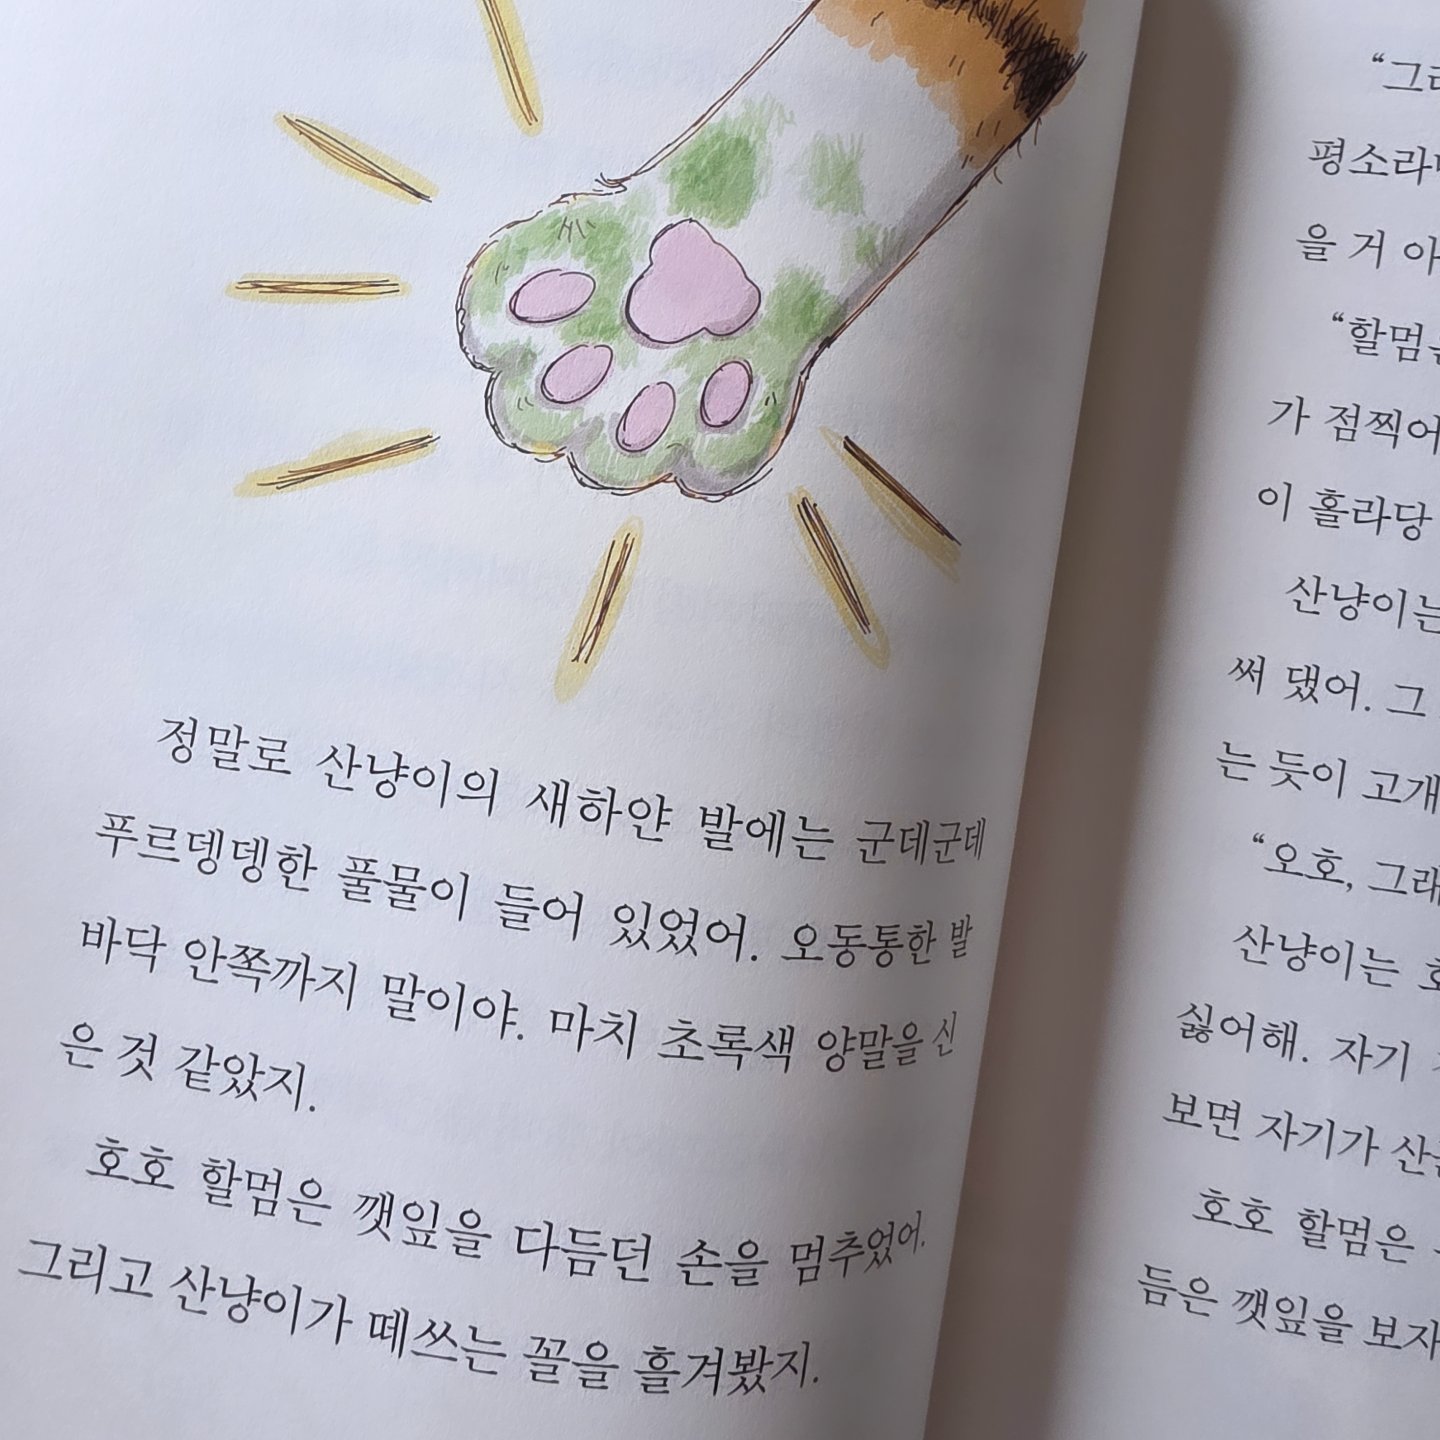 정말로 산냥이의 새하얀 발에는 군데군데
푸르뎅뎅한 풀물이 들어 있었어. 오동통한 발
바닥 안쪽까지 말이야. 마치 초록색 양말을 신
은 것 같았지.
호호 할멈은 깻잎을 다듬던 손을 멈추었어.
그리고 산냥이가 떼쓰는 꼴을 흘겨봤지.
“그래
평소라면
을 거 아
“할멈은
가 점찍어
이 홀라당
산냥이는
써 댔어. 그
는 듯이 고개
“오호, 그래
산냥이는
싫어해. 자기
보면 자기가 산
호호 할멈은
듬은 깻잎을 보자